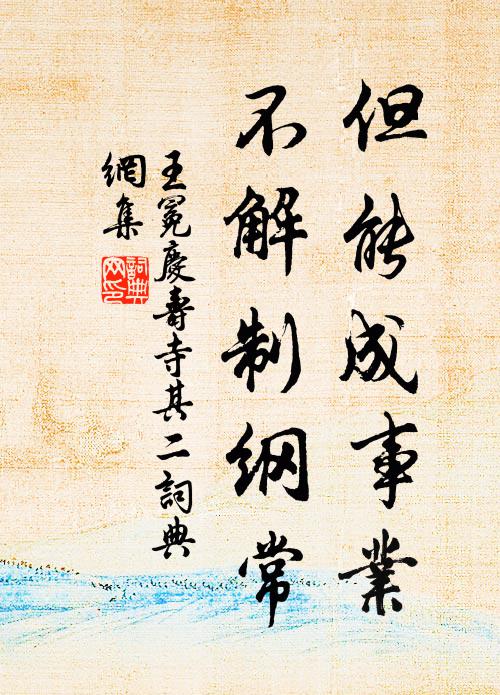 但能成事業
不解制綱常
王冕慶壽寺其二詞典
網集
詞典
网印